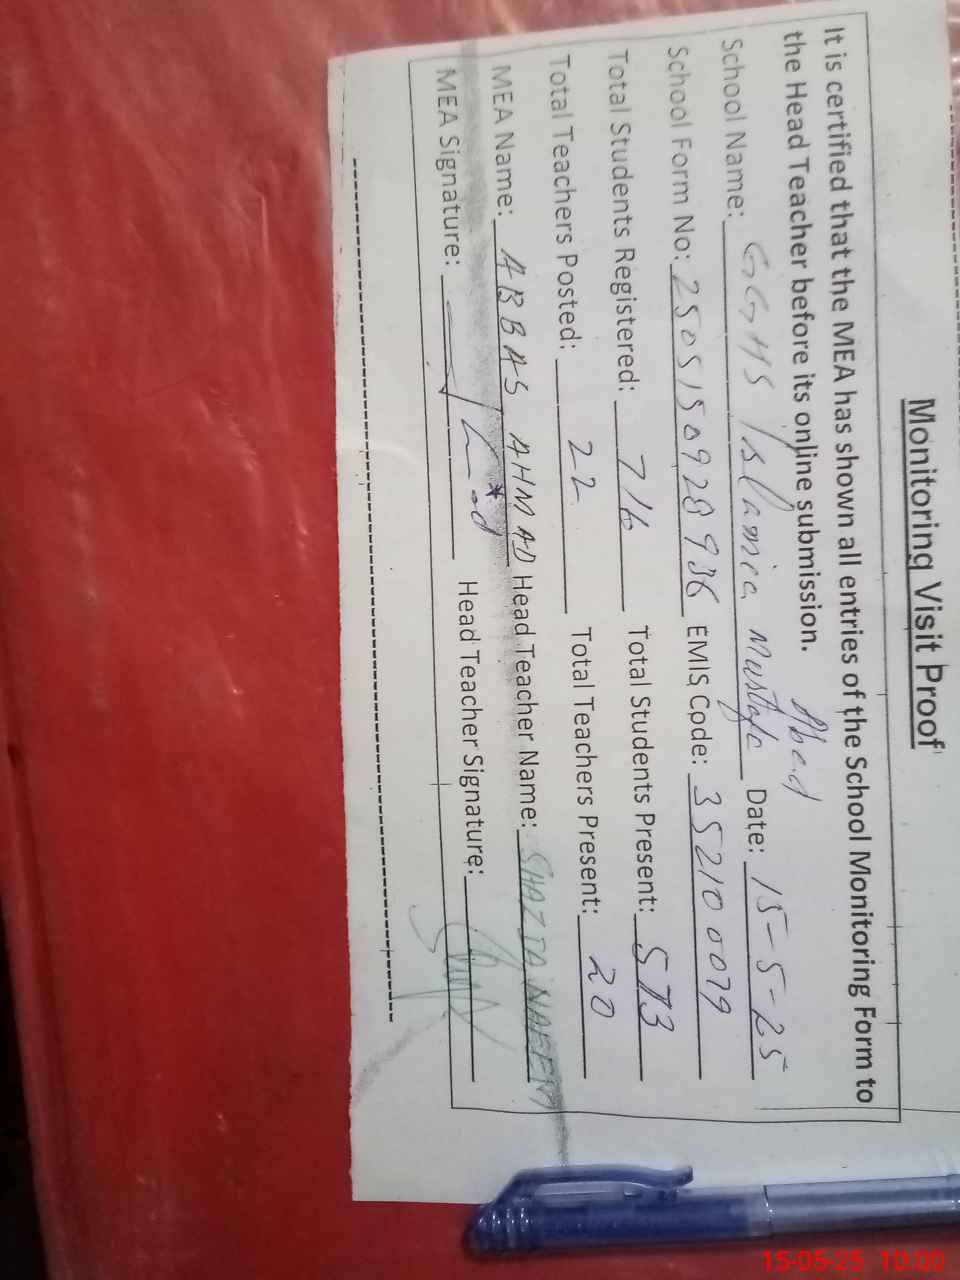 Monitoring Visit Proof
It is certified that the MEA has shown all entries of the School Monitoring Form to
the Head Teacher before its online submission.
School Name: GGHS Islamia Mustafa Abad Date: 15-5-25
School Form No: 2505150928936 EMIS Code: 35210079
Total Students Registered: 716 Total Students Present: 573
Total Teachers Posted: 22 Total Teachers Present: 20
MEA Name: ABBAS AHMAD Head Teacher Name: SHAZIA NAEEM
MEA Signature: Head Teacher Signature:
15-05-25 10:00